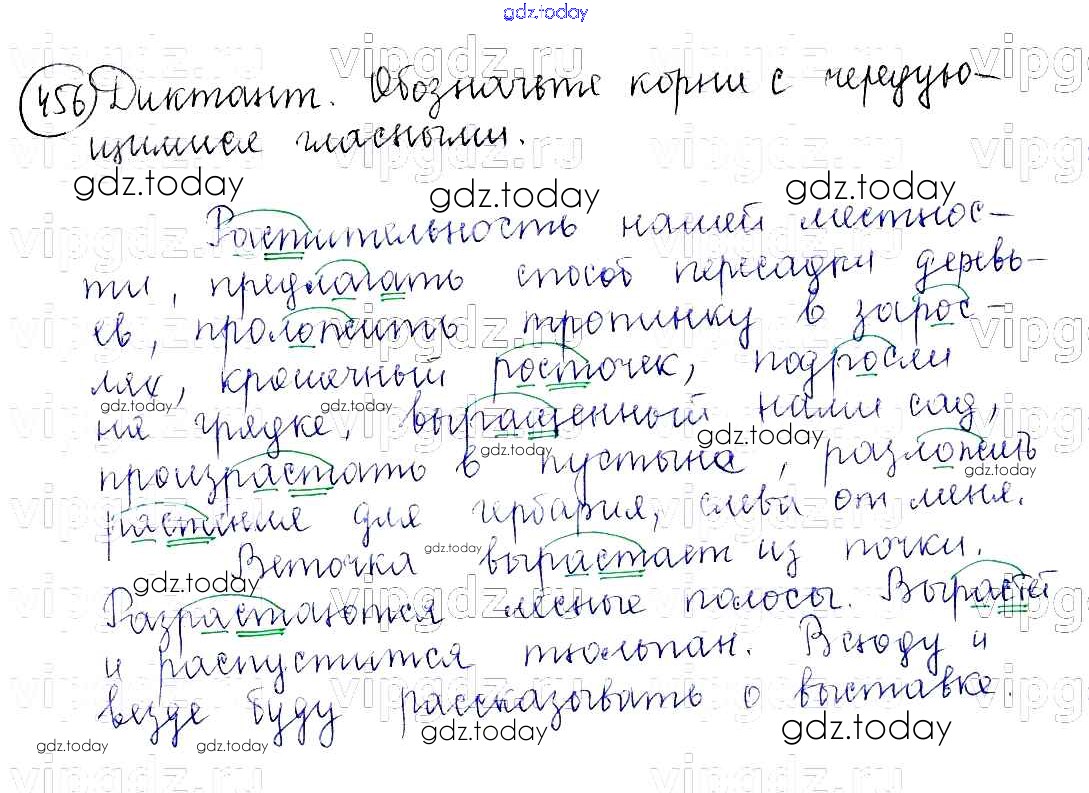 gdz.today
456 Диктант. Обозначьте корни с чередую-
щимися гласными.
gdz.today gdz.today gdz.today
Растительность нашей местнос-
ти, предлагать способ пересадки деревь-
ев, проложить тропинку в зарос-
лях, крошечный росточек, подросли
gdz.today gdz.today
на грядке, выращенный нами сад,
gdz.today gdz.today
произрастать в пустыне, разложить
растения для гербария, слева от меня.
Веточка вырастает из почки.
gdz.today gdz.today
Разрастаются лесные полосы. Вырастет
и распустится тюльпан. Всюду и
везде буду рассказывать о выставке.
gdz.today gdz.today gdz.today gdz.today
vipgdz.ru